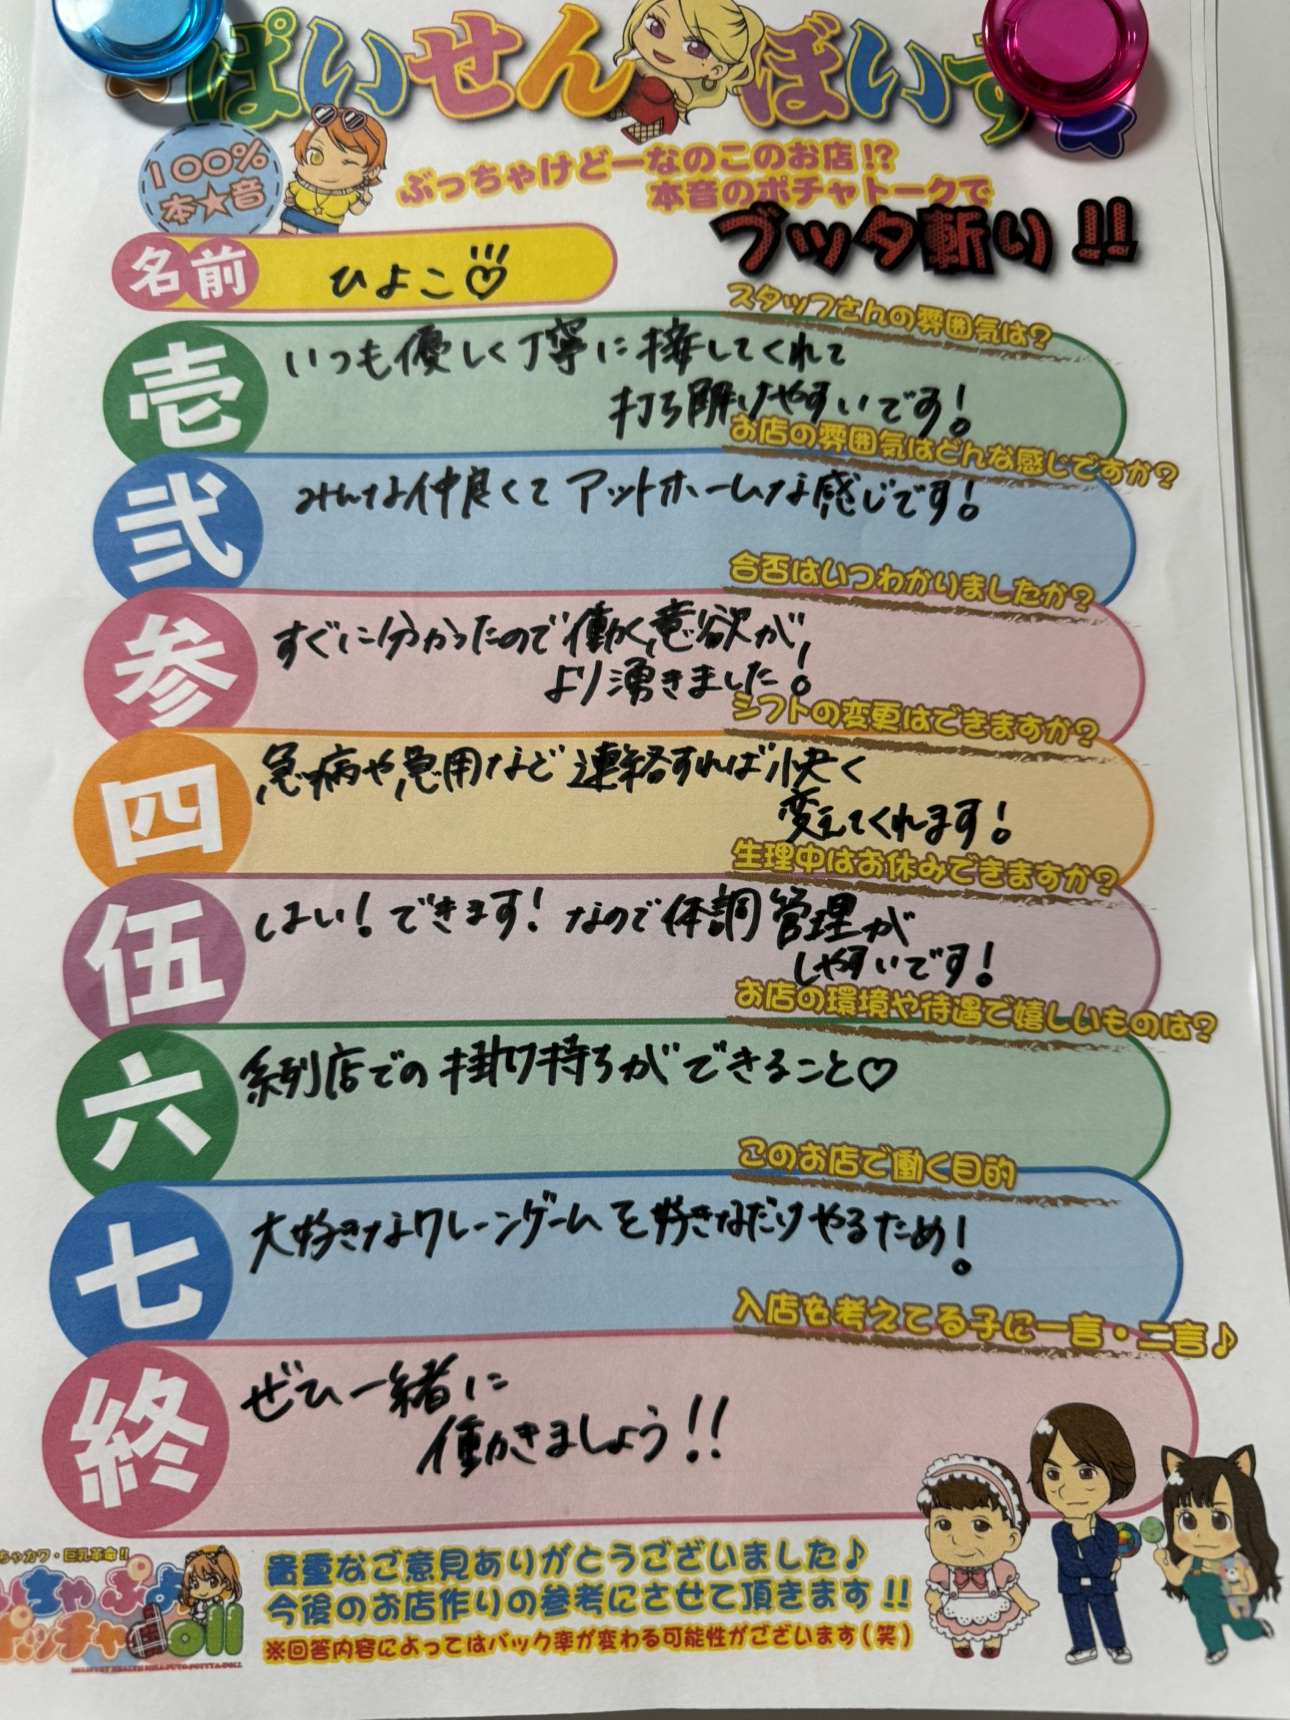 ぱいせんぼいす
100%
本★音
ぶっちゃけどーなのこのお店!?
本音のポチャトークで
ブッタ斬り!!
名前
ひよこ♡
スタッフさんの雰囲気は?
壱
いつも優しく丁寧に接してくれて
打ち解けやすいです!
お店の雰囲気はどんな感じですか?
弐
みんな仲良くてアットホームな感じです!
合否はいつわかりましたか?
参
すぐに分かったので働く意欲が
より湧きました!
シフトの変更はできますか?
四
急病や急用など連絡すれば快く
変えてくれます!
生理中はお休みできますか?
伍
はい!できます!なので体調管理が
しやすいです!
お店の環境や待遇で嬉しいものは?
六
系列店での掛け持ちができること♡
このお店で働く目的
七
大好きなクレーンゲームを好きなだけやるため!
入店を考えてる子に一言・二言♪
終
ぜひ一緒に
働きましょう!!
ちゃカワ・巨乳革命!!
ちゃぷよ
ポッチャdoll
貴重なご意見ありがとうございました♪
今後のお店作りの参考にさせて頂きます!!
※回答内容によってはバック率が変わる可能性がございます(笑)